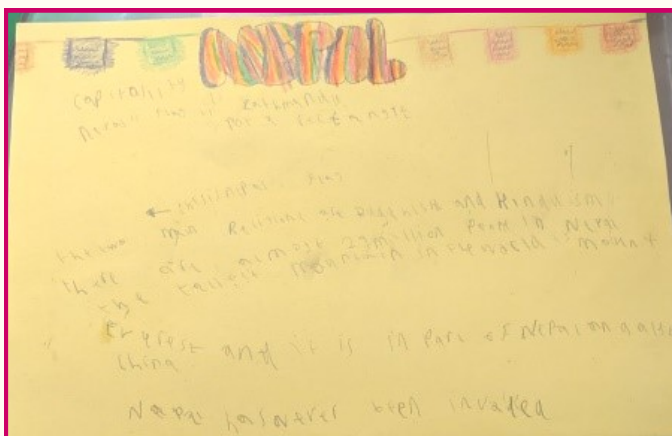 NEPAL.
capital city is Kathmandu
Nepal flag is not a rectangle
← this is nepal flag
the two main Religions are Buddhism and Hinduism
there are almost 29 million People in Nepal
the tallest mountain in the world mount
Everest and it is in Part of Nepal and also
China
Nepal has never been invaded